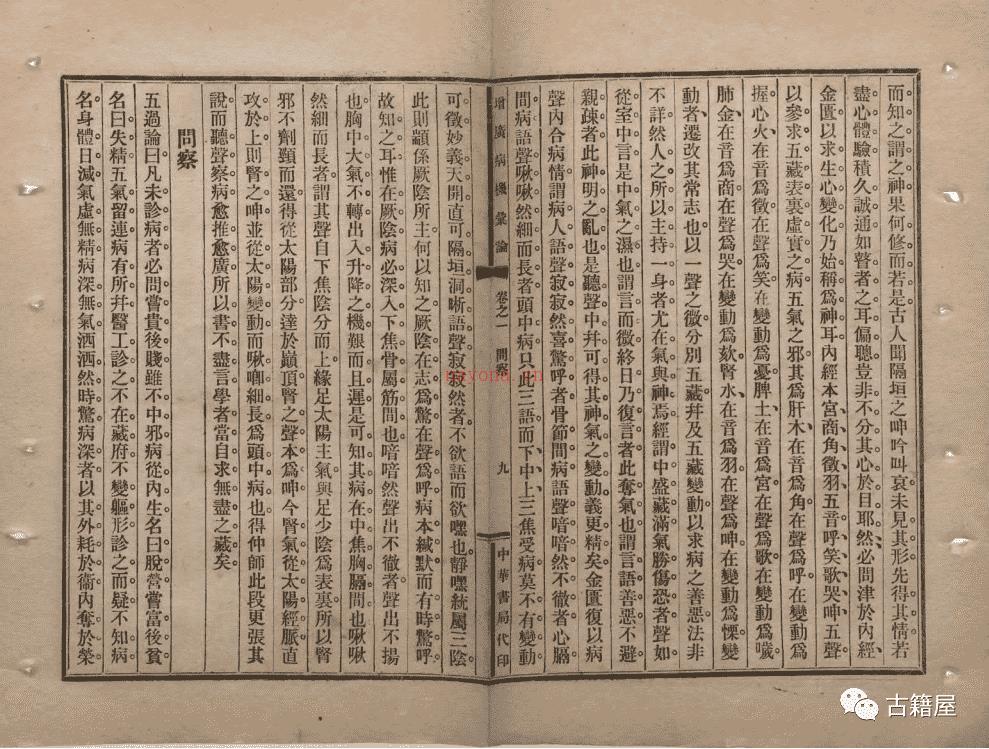 而知之謂之神果何修而若是古人聞隔垣之呻吟叫哀未見其形先得其情若
盡心體驗積久誠通如瞽者之耳偏聰豈非不分其心於目耶然必問津於內經
金匱以求生心變化乃始稱爲神耳內經本宮商角徵羽五音呼笑歌哭呻五聲
以參求五藏表裏虛實之病五氣之邪其爲肝木在音爲角在聲爲呼在變動爲
握心火在音爲徵在聲爲笑在變動爲憂脾土在音爲宮在聲爲歌在變動爲噦
肺金在音爲商在聲爲哭在變動爲欬腎水在音爲羽在聲爲呻在變動爲慄變
動者遷改其常志也以一聲之微分別五藏幷及五藏變動以求病之善惡法非
不詳然人之所以主持一身者尤在氣與神焉經謂中盛藏滿氣勝傷恐者聲如
從室中言是中氣之濕也謂言而微終日乃復言者此奪氣也謂言語善惡不避
親疎者此神明之亂也是聽聲中幷可得其神氣之變動義更精矣金匱復以病
聲內合病情謂病人語聲寂寂然喜驚呼者骨節間病語聲喑喑然不徹者心膈
間病語聲啾啾然細而長者頭中病只此三語而下中上三焦受病莫不有變動
增廣病機彙論 卷之一 問察 九 中華書局代印
可徵妙義天開直可隔垣洞晰語聲寂寂然者不欲語而欲嘿也靜嘿統屬三陰
此則顓係厥陰所主何以知之厥陰在志爲驚在聲爲呼病本緘默而有時驚呼
故知之耳惟在厥陰病必深入下焦骨屬筋間也喑喑然聲出不徹者聲出不揚
也胸中大氣不轉出入升降之機艱而且遲是可知其病在中焦胸膈間也啾啾
然細而長者謂其聲自下焦陰分而上緣足太陽主氣與足少陰陰爲表裏所以腎
邪不劑頸而還得從太陽部分達於巔頂腎之聲本爲呻今腎氣從太陽經脈直
攻於上則腎之呻並從太陽變動而啾唧細長爲頭中病也得仲師此段更張其
說而聽聲察病愈推愈廣所以書不盡言學者當自求無盡之藏矣
問察
五過論曰凡未診病者必問嘗貴後賤雖不中邪病從內生名曰脫營嘗富後貧
名曰失精五氣留連病有所幷醫工診之不在藏府不變軀形診之而疑不知病
名身體日減氣虛無精病深無氣洒洒然時驚病深者以其外耗於衞內奪於榮
nayona.cn
古籍屋